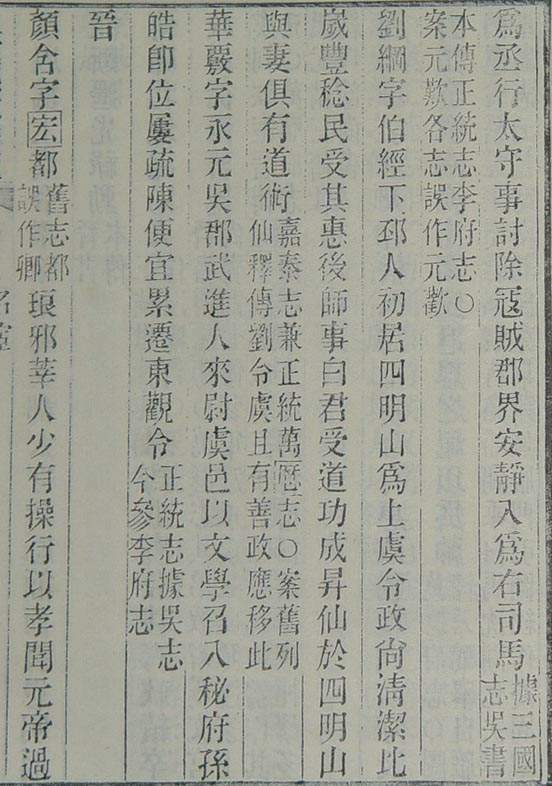 爲丞行太守事討除寇賊郡界安靜入爲右司馬據三國志吳書
本傳正統志李府志○案元歎各志誤作元歡
劉綱字伯經下邳人初居四明山爲上虞令政尙清潔比
歲豐稔民受其惠後師事白君受道功成昇仙於四明山
與妻俱有道術嘉泰志兼正統萬厯志○案舊列仙釋傳劉令虞且有善政應移此
華覈字永元吳郡武進人來尉虞邑以文學召入秘府孫
皓卽位屢疏陳便宜累遷東觀令正統志據吳志今參李府志
晉
顏含字宏都舊志都誤作卿琅邪莘人少有操行以孝聞元帝過